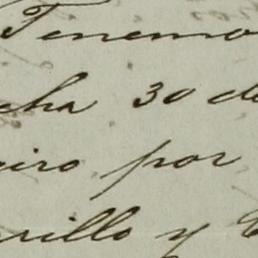 Tenemo
cha 30 de
giro por
rillo y